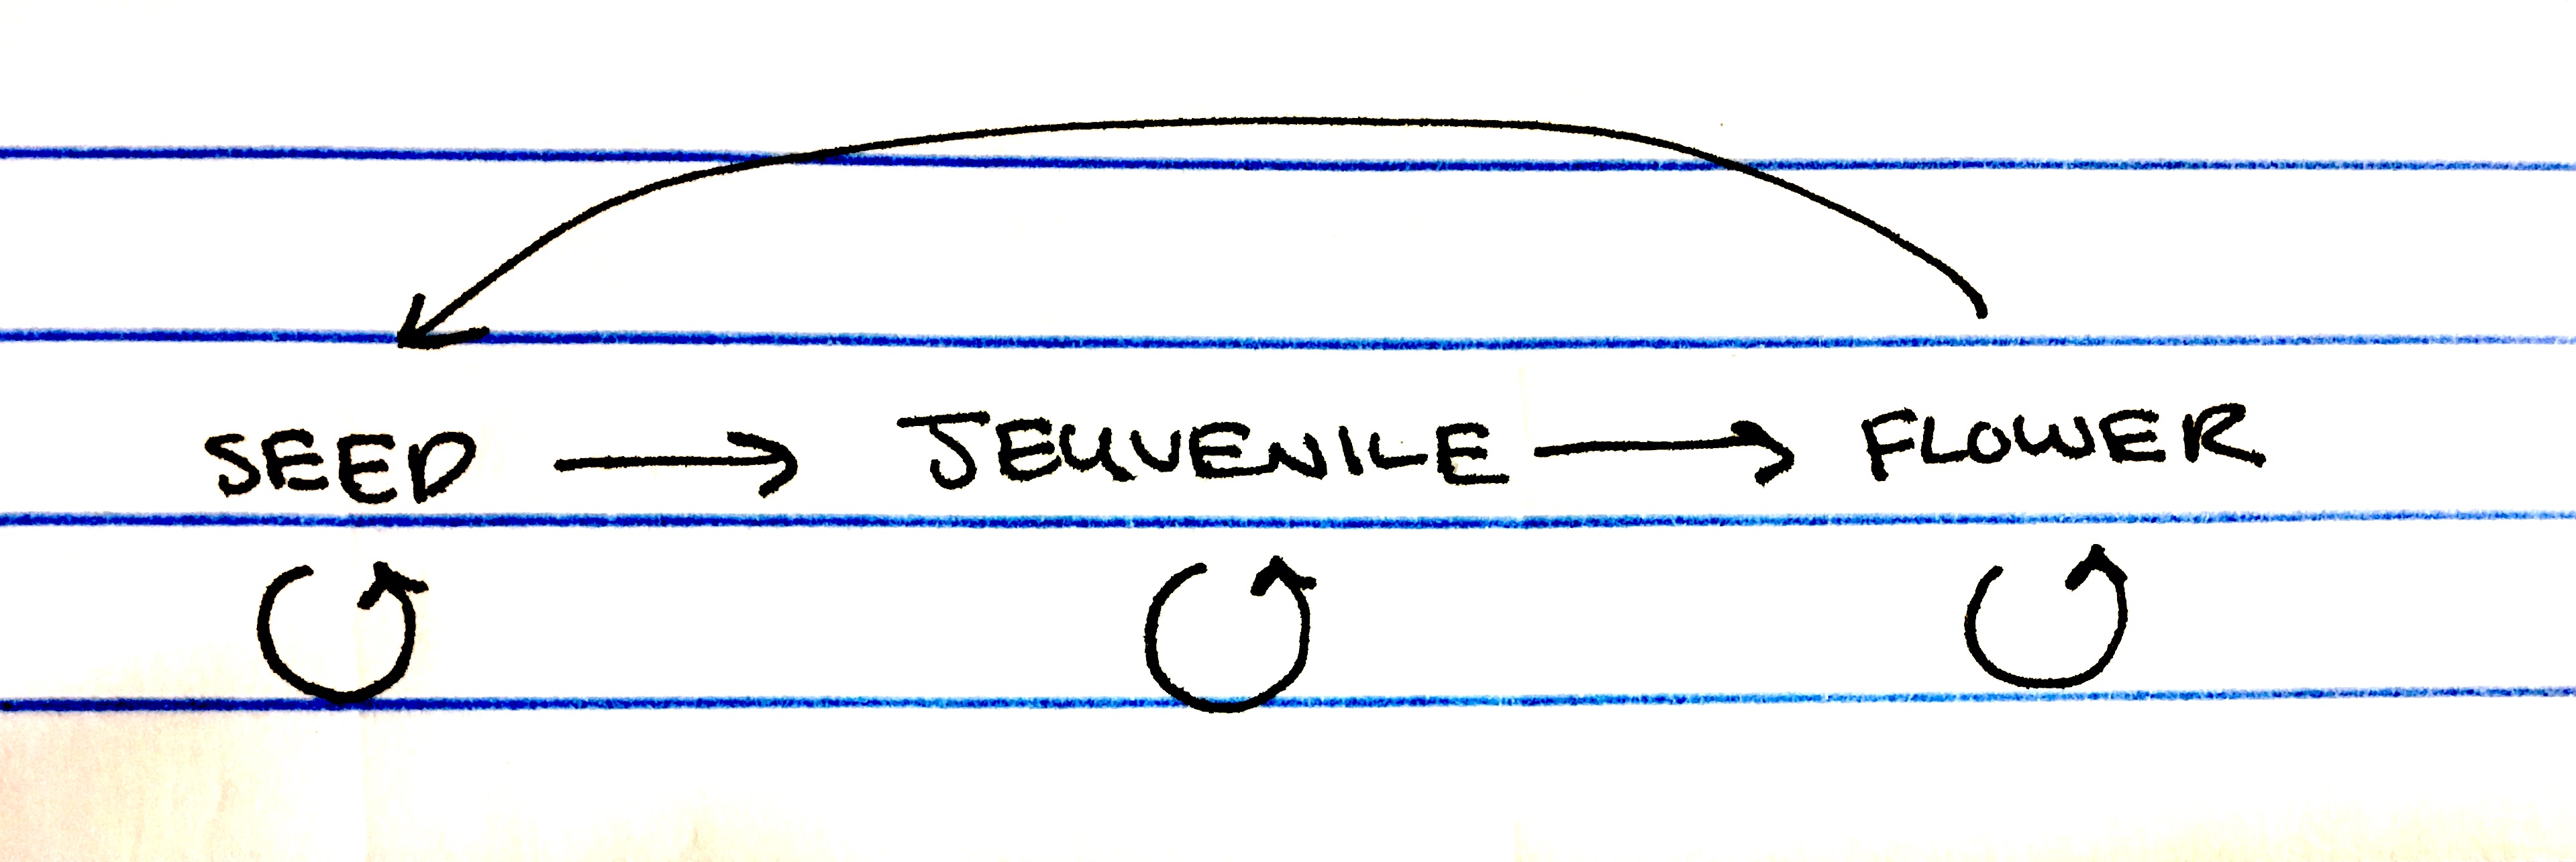 SEED → JEUVENILE → FLOWER